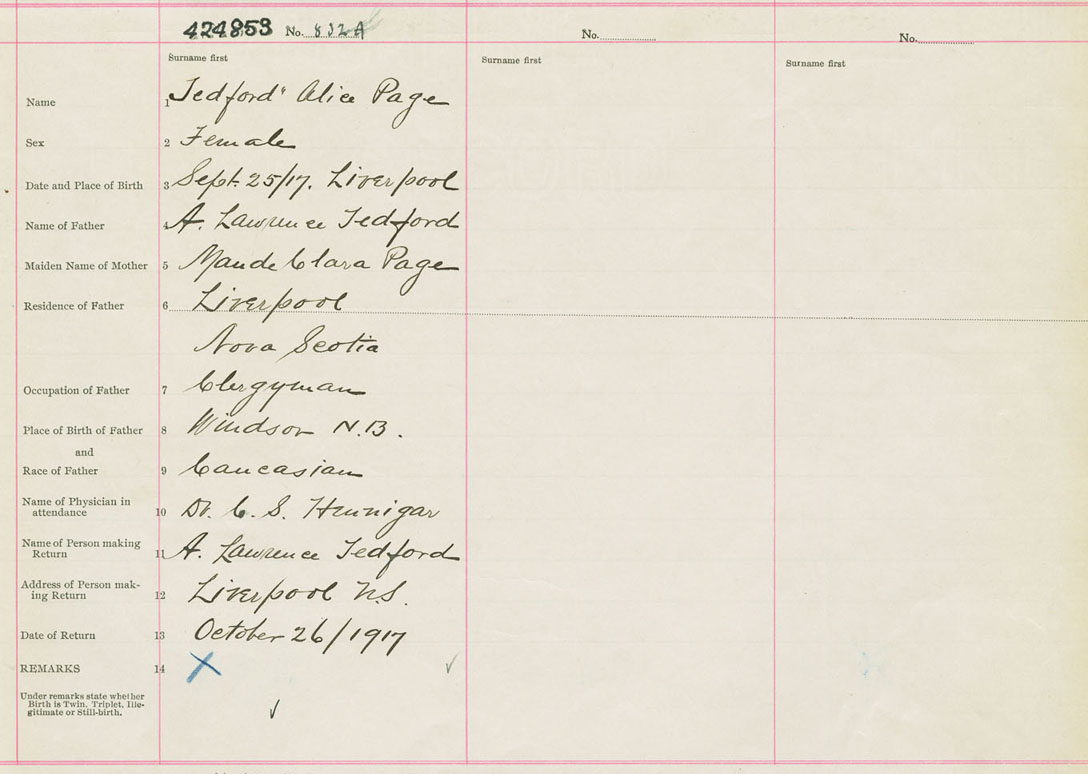 424853 No. 832A No. No.
Surname first Surname first Surname first
Name 1 Tedford" Alice Page
Sex 2 Female
Date and Place of Birth 3 Sept. 25/17. Liverpool
Name of Father 4 A. Lawrence Tedford
Maiden Name of Mother 5 Maude Clara Page
Residence of Father 6 Liverpool
Nova Scotia
Occupation of Father 7 Clergyman
Place of Birth of Father 8 Windsor N.B.
and
Race of Father 9 Caucasian
Name of Physician in
attendance 10 Dr. C. S. Hennigar
Name of Person making
Return 11 A. Lawrence Tedford
Address of Person mak-
ing Return 12 Liverpool N.S.
Date of Return 13 October 26/1917
REMARKS 14
Under remarks state whether
Birth is Twin, Triplet, Ille-
gitimate or Still-birth.